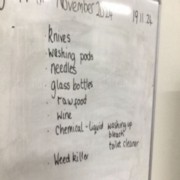 November 2024 19.11.24
knives
washing pods
needles
glass bottles
raw food
wine
chemical - liquid washing up
bleach
toilet cleaner
Weed killer